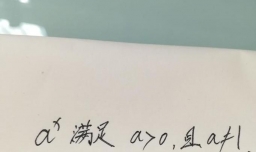 aˣ 满足 a>0,且 a≠1